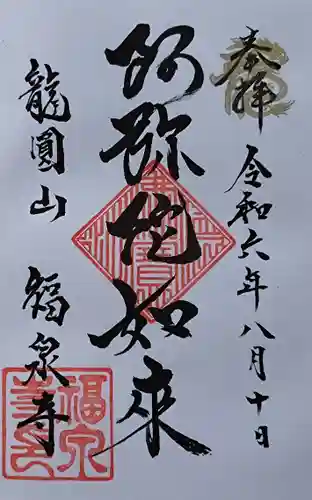 奉拝
令和六年八月十日
阿弥陀如来
龍圓山 福泉寺